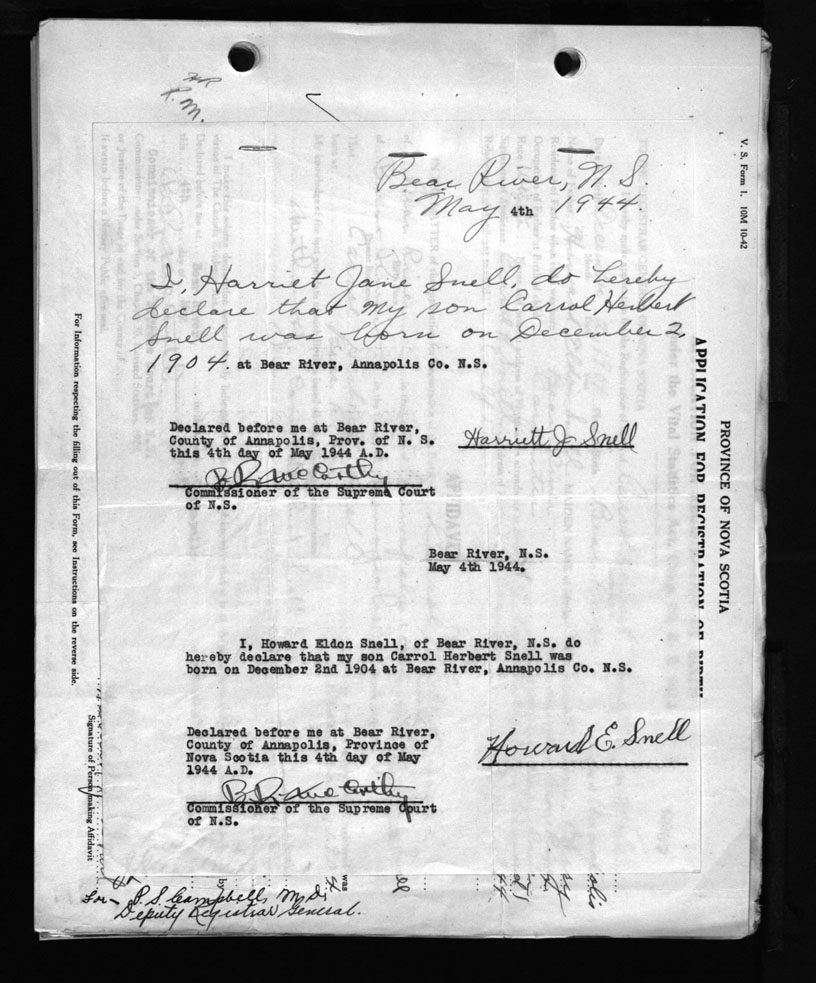 R.M.
Bear River, N.S.
May 4th 1944.
I, Harriet Jane Snell, do hereby
declare that my son Carrol Herbert
Snell was born on December 2,
1904. at Bear River, Annapolis Co. N.S.
Declared before me at Bear River,
County of Annapolis, Prov. of N. S.
this 4th day of May 1944 A.D.
Harriett J Snell
B. R. McCarthy
Commissioner of the Supreme Court
of N.S.
Bear River, N.S.
May 4th 1944.
I, Howard Eldon Snell, of Bear River, N.S. do
hereby declare that my son Carrol Herbert Snell was
born on December 2nd 1904 at Bear River, Annapolis Co. N.S.
Declared before me at Bear River,
County of Annapolis, Province of
Nova Scotia this 4th day of May
1944 A.D.
Howard E. Snell
B. R. McCarthy
Commissioner of the Supreme Court
of N.S.
For P.S. Campbell, M.D.
Deputy Registrar General.
V. S. Form 1. 10M 10-42
PROVINCE OF NOVA SCOTIA
APPLICATION FOR REGISTRATION OF BIRTH
For Information respecting the filling out of this Form, see Instructions on the reverse side.
Signature of Person making Affidavit
by
was